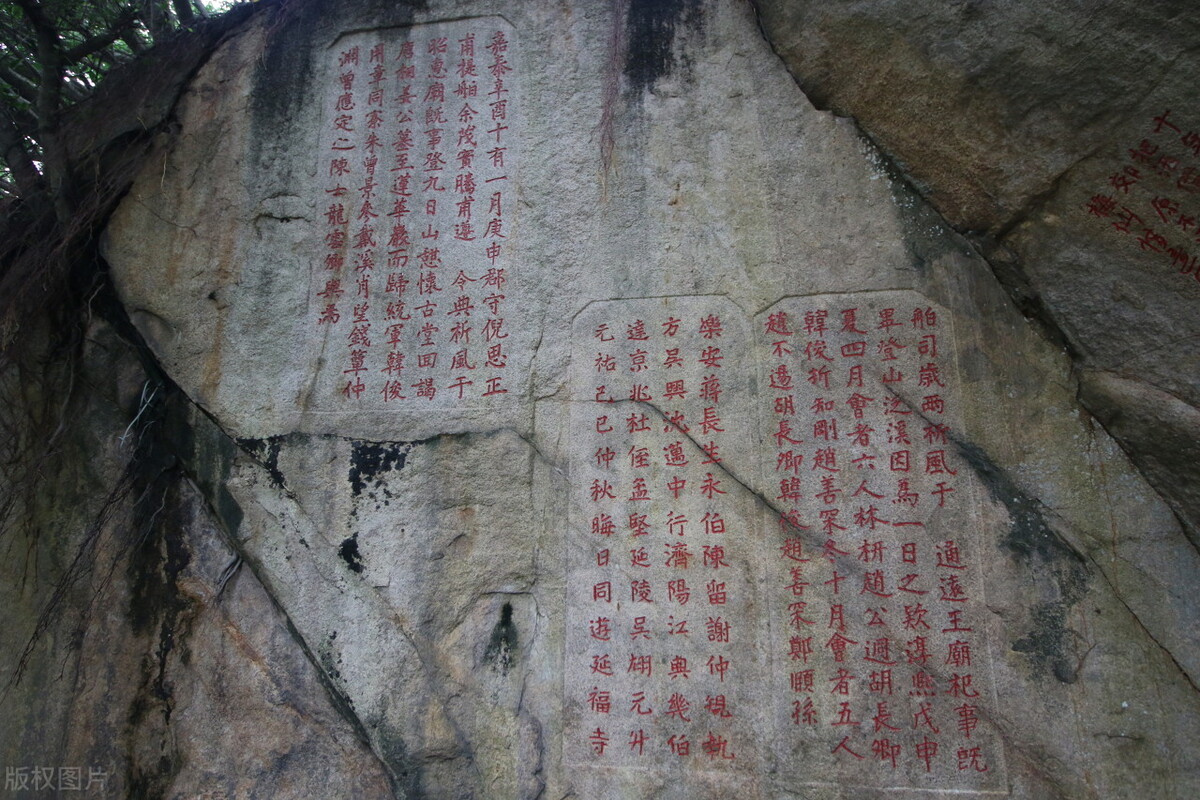 舶司歲兩祈風于 通遠王廟祀事既
畢登山泛溪因爲一日之欵淳熙戊申
夏四月會者六人林枅趙公迥胡長卿
韓俊折知剛趙善寀冬十月會者五人
趙不逷胡長卿韓俊趙善寀鄭頤孫
樂安蔣長生永伯陳留謝仲規執
方吳興沈邁中行濟陽江與幾伯
達京兆杜侄孟堅延陵吳栩元升
元祐己巳仲秋晦日同遊延福寺
嘉泰辛酉十有一月庚申郡守倪思正
甫提舶余茂實騰甫遵 令典祈風于
昭惠廟既事登九日山憇懷古堂回謁
唐相姜公墓至蓮華巖而歸統軍韓俊
用章同寀朱曾景參戴溪肖望錢簞仲
淵曾應定之陳士龍雲卿與焉
版权图片